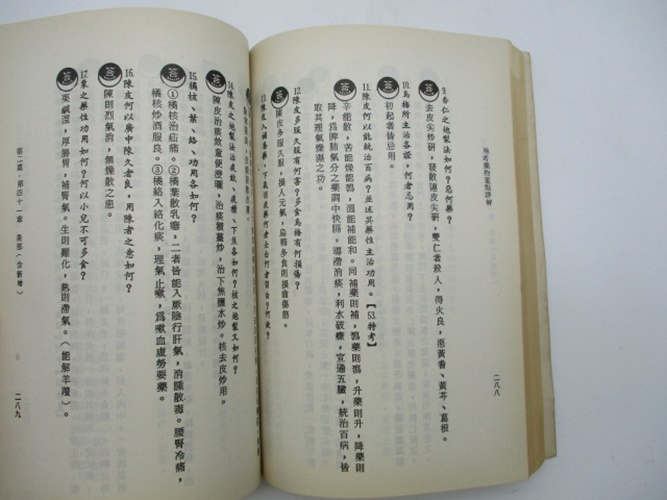 檢考藥物重點詳解
二八八
9.杏仁之炮製法如何?惡何藥?
答 去皮尖炒研,發散連皮尖研,雙仁者殺人,得火良,惡黃耆、黃芩、葛根。
10.烏梅所主治各證,何者忌用?
答 初起者皆忌用。
11.陳皮何以能統治百病?並述其藥性主治功用。【53特考】
答 辛能散,苦能燥能瀉,溫能補能和。同補藥則補,瀉藥則瀉,升藥則升,降藥則
降,爲脾肺氣分之藥調中快膈,導滯消痰,利水破癥,宣通五臟,統治百病,皆
取其理氣燥濕之功。
12.陳皮多服久服有何害?多食烏梅有何損傷?
答 陳皮多服久服,損人元氣,烏梅多食則損齒傷筋。
13.陳皮入補養藥、下氣消痰藥何者去白何者留白?何故?
14.陳皮之炮製法治痰欬、痰積、下焦各如何?核之炮製又如何?
答 陳皮治痰欬童便浸曬,治痰積薑炒,治下焦鹽水炒。核去皮炒用。
15.橘核、葉、絡、功用各如何?
答 ①橘核治疝痛。②橘葉散乳癰,二者皆能入厥陰行肝氣,消腫散毒。腰腎冷痛,
橘核炒酒服良。③橘絡入絡化痰,理氣止嗽,爲嗽血虛勞要藥。
16.陳皮何以廣中陳久者良,用陳者之意如何?
答 陳則烈氣消,無燥散之患。
17.棗之藥性功用如何?何以小兒不可多食?
答 棗鹹溫,厚腸胃,補腎氣。生則難化,熟則滯氣。(能解羊羶)。
第二篇・第四十一章 果部(含新增)
二八九